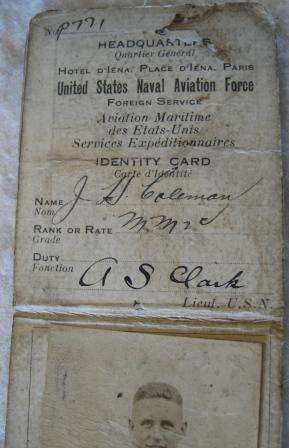 No P771
HEADQUARTERS
Quartier Général
HOTEL D'IENA, PLACE D'IÉNA, PARIS
United States Naval Aviation Force
FOREIGN SERVICE
Aviation Maritime
des Etats-Unis
Services Expéditionnaires
IDENTITY CARD
Carte d'Identité
NAME J. H. Coleman
Nom
RANK OR RATE M.M. 2 c
Grade
DUTY
Fonction A S Clark
Lieut. U.S.N.